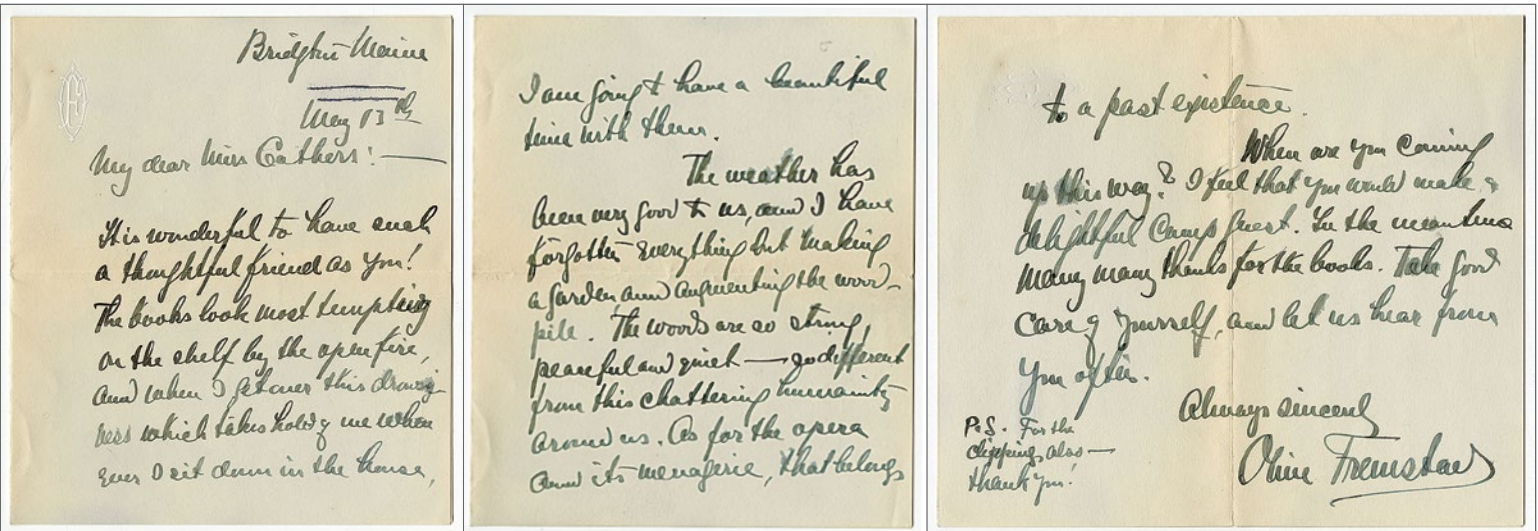 Bridgton Maine
May 13th
My dear Miss Cathers! —
It is wonderful to have such
a thoughtful friend as you!
The books look most tempting
on the shelf by the open fire,
and when I get over this drowsi-
ness which takes hold of me when
ever I sit down in the house,
I am going to have a beautiful
time with them.
The weather has
been very good to us, and I have
forgotten everything but making
a garden and augmenting the wood-
pile. The woods are so strong,
peaceful and quiet — so different
from this chattering humanity
around us. As for the opera
and its menagerie, that belongs
to a past existence.
When are you coming
up this way? I feel that you would make a
delightful Camp guest. In the meantime
many many thanks for the books. Take good
care of yourself, and let us hear from
you often.
Always sincerely
Olive Fremstad
P.S. For the
clippings also —
thank you!